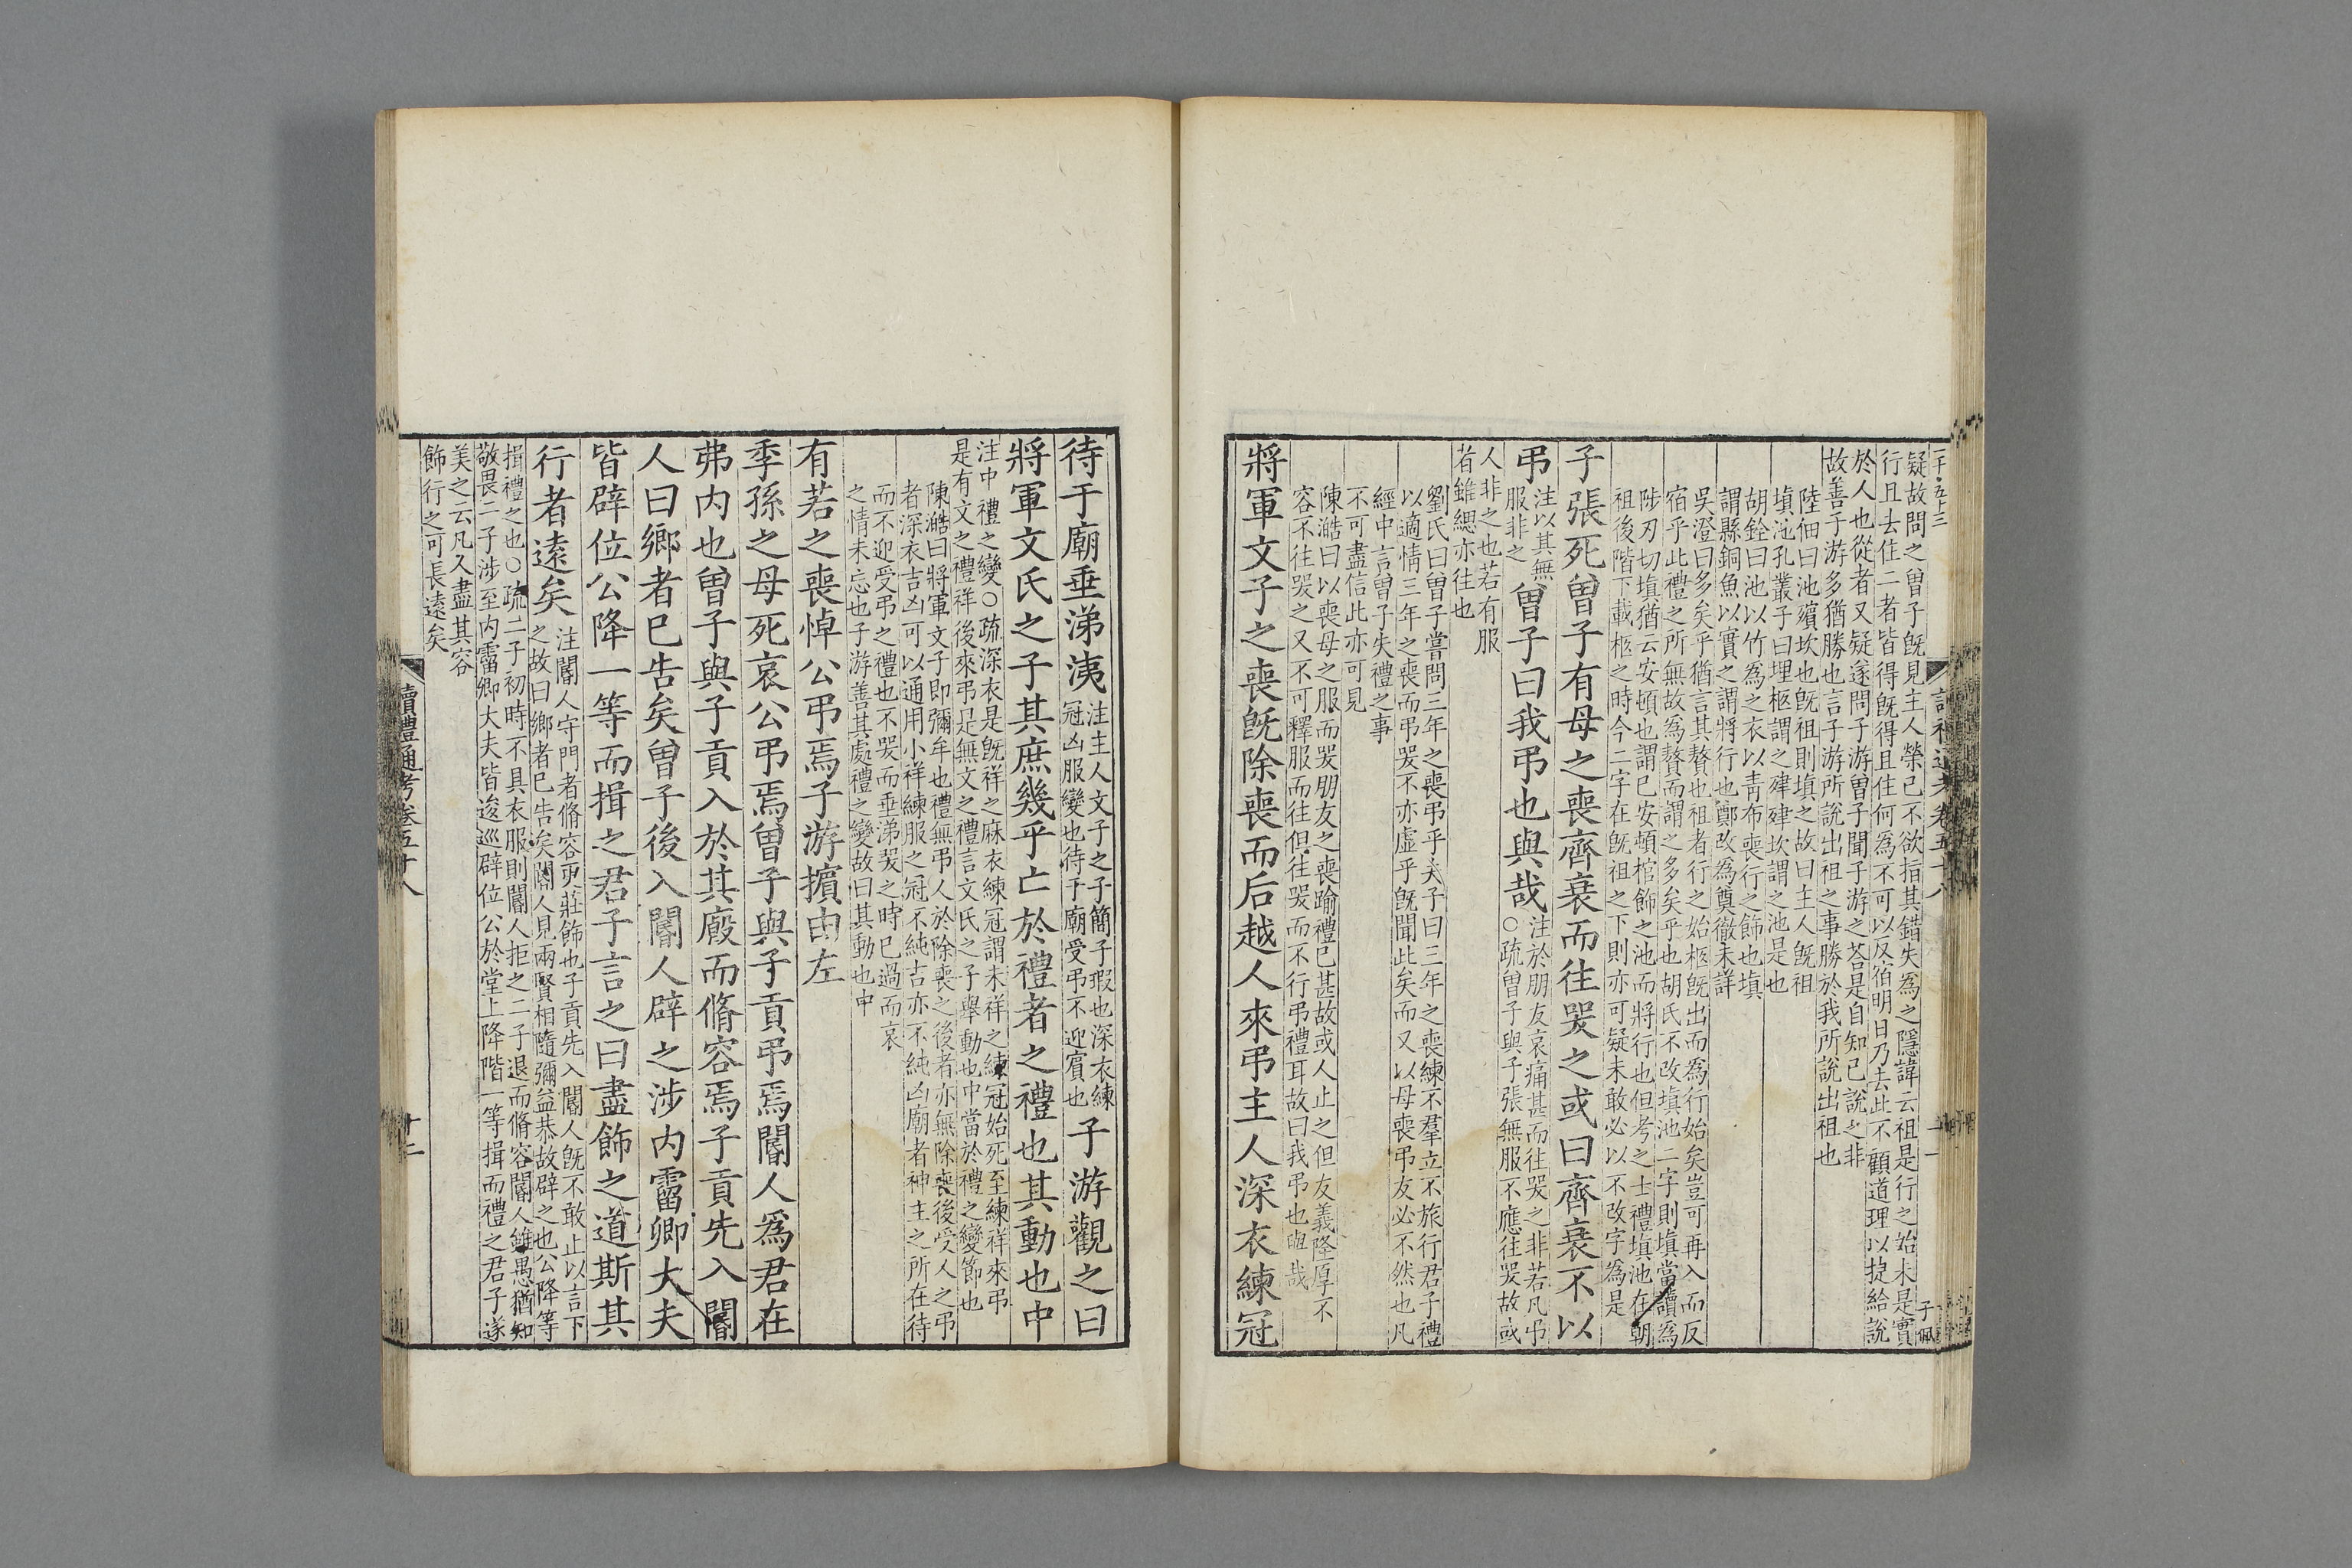 疑故問之曾子旣見主人榮己不欲指其錯失爲之隱諱云祖是行之始未是實
行且去住二者皆得旣得且住何爲不可以反宿明日乃去此不顧道理以捷給說
於人也從者又疑遂問子游曾子聞子游之荅是自知己說之非
故善子游多猶勝也言子游所說出祖之事勝於我所說出祖也
陸佃曰池殯坎也旣祖則塡之故曰主人旣祖
塡池孔叢子曰埋柩謂之肂肂坎謂之池是也
胡銓曰池以竹爲之衣以靑布喪行之飾也塡
謂縣銅魚以實之謂將行也鄭改爲奠徹未詳
吳澄曰多矣乎猶言其贅也祖者行之始柩旣出而爲行始矣豈可再入而反
宿乎此禮之所無故爲贅而謂之多矣乎也胡氏不改塡池二字則塡當讀爲
陟刃切塡猶云安頓也謂已安頓棺飾之池而將行也但考之士禮塡池在朝
祖後階下載柩之時今二字在旣祖之下則亦可疑未敢必以不改字爲是
子張死曾子有母之喪齊衰而往哭之或曰齊衰不以
弔 注以其無服非之 曾子曰我弔也與哉 注於朋友哀痛甚而往哭之非若凡弔○疏曾子與子張無服不應往哭故或
人非之也若有服
者雖緦亦往也
劉氏曰曾子嘗問三年之喪弔乎夫子曰三年之喪練不羣立不旅行君子禮
以適情三年之喪而弔哭不亦虛乎旣聞此矣而又以母喪弔友必不然也凡
經中言曾子失禮之事
不可盡信此亦可見
陳澔曰以喪母之服而哭朋友之喪踰禮已甚故或人止之但友義隆厚不
容不往哭之又不可釋服而往但往哭而不行弔禮耳故曰我弔也與哉
將軍文子之喪旣除喪而后越人來弔主人深衣練冠
待于廟垂涕洟 注主人文子之子簡子瑕也深衣練冠凶服變也待于廟受弔不迎賓也 子游觀之曰
將軍文氏之子其庶幾乎亡於禮者之禮也其動也中
注中禮之變○疏深衣是旣祥之麻衣練冠謂未祥之練冠始死至練祥來弔
是有文之禮祥後來弔是無文之禮言文氏之子舉動也中當於禮之變節也
陳澔曰將軍文子卽彌牟也禮無弔人於除喪之後者亦無除喪後受人之弔
者深衣吉凶可以通用小祥練服之冠不純吉亦不純凶廟者神主之所在待
而不迎受弔之禮也不哭而垂涕哭之時已過而哀
之情未忘也子游善其處禮之變故曰其動也中
有若之喪悼公弔焉子游擯由左
季孫之母死哀公弔焉曾子與子貢弔焉閽人爲君在
弗內也曾子與子貢入於其廄而脩容焉子貢先入閽
人曰鄉者已告矣曾子後入閽人辟之涉內霤卿大夫
皆辟位公降一等而揖之君子言之曰盡飾之道斯其
行者遠矣 注閽人守門者脩容更莊飾也子貢先入閽人旣不敢止以言下之故曰鄉者已告矣閽人見兩賢相隨彌益恭故辟之也公降等
揖禮之也○疏二子初時不具衣服則閽人拒之二子退而脩容閽人雖愚猶知
敬畏二子涉至內霤卿大夫皆逡巡辟位公於堂上降階一等揖而禮之君子遂
美之云凡人盡其容
飾行之可長遠矣
讀禮通考卷五十八
十二